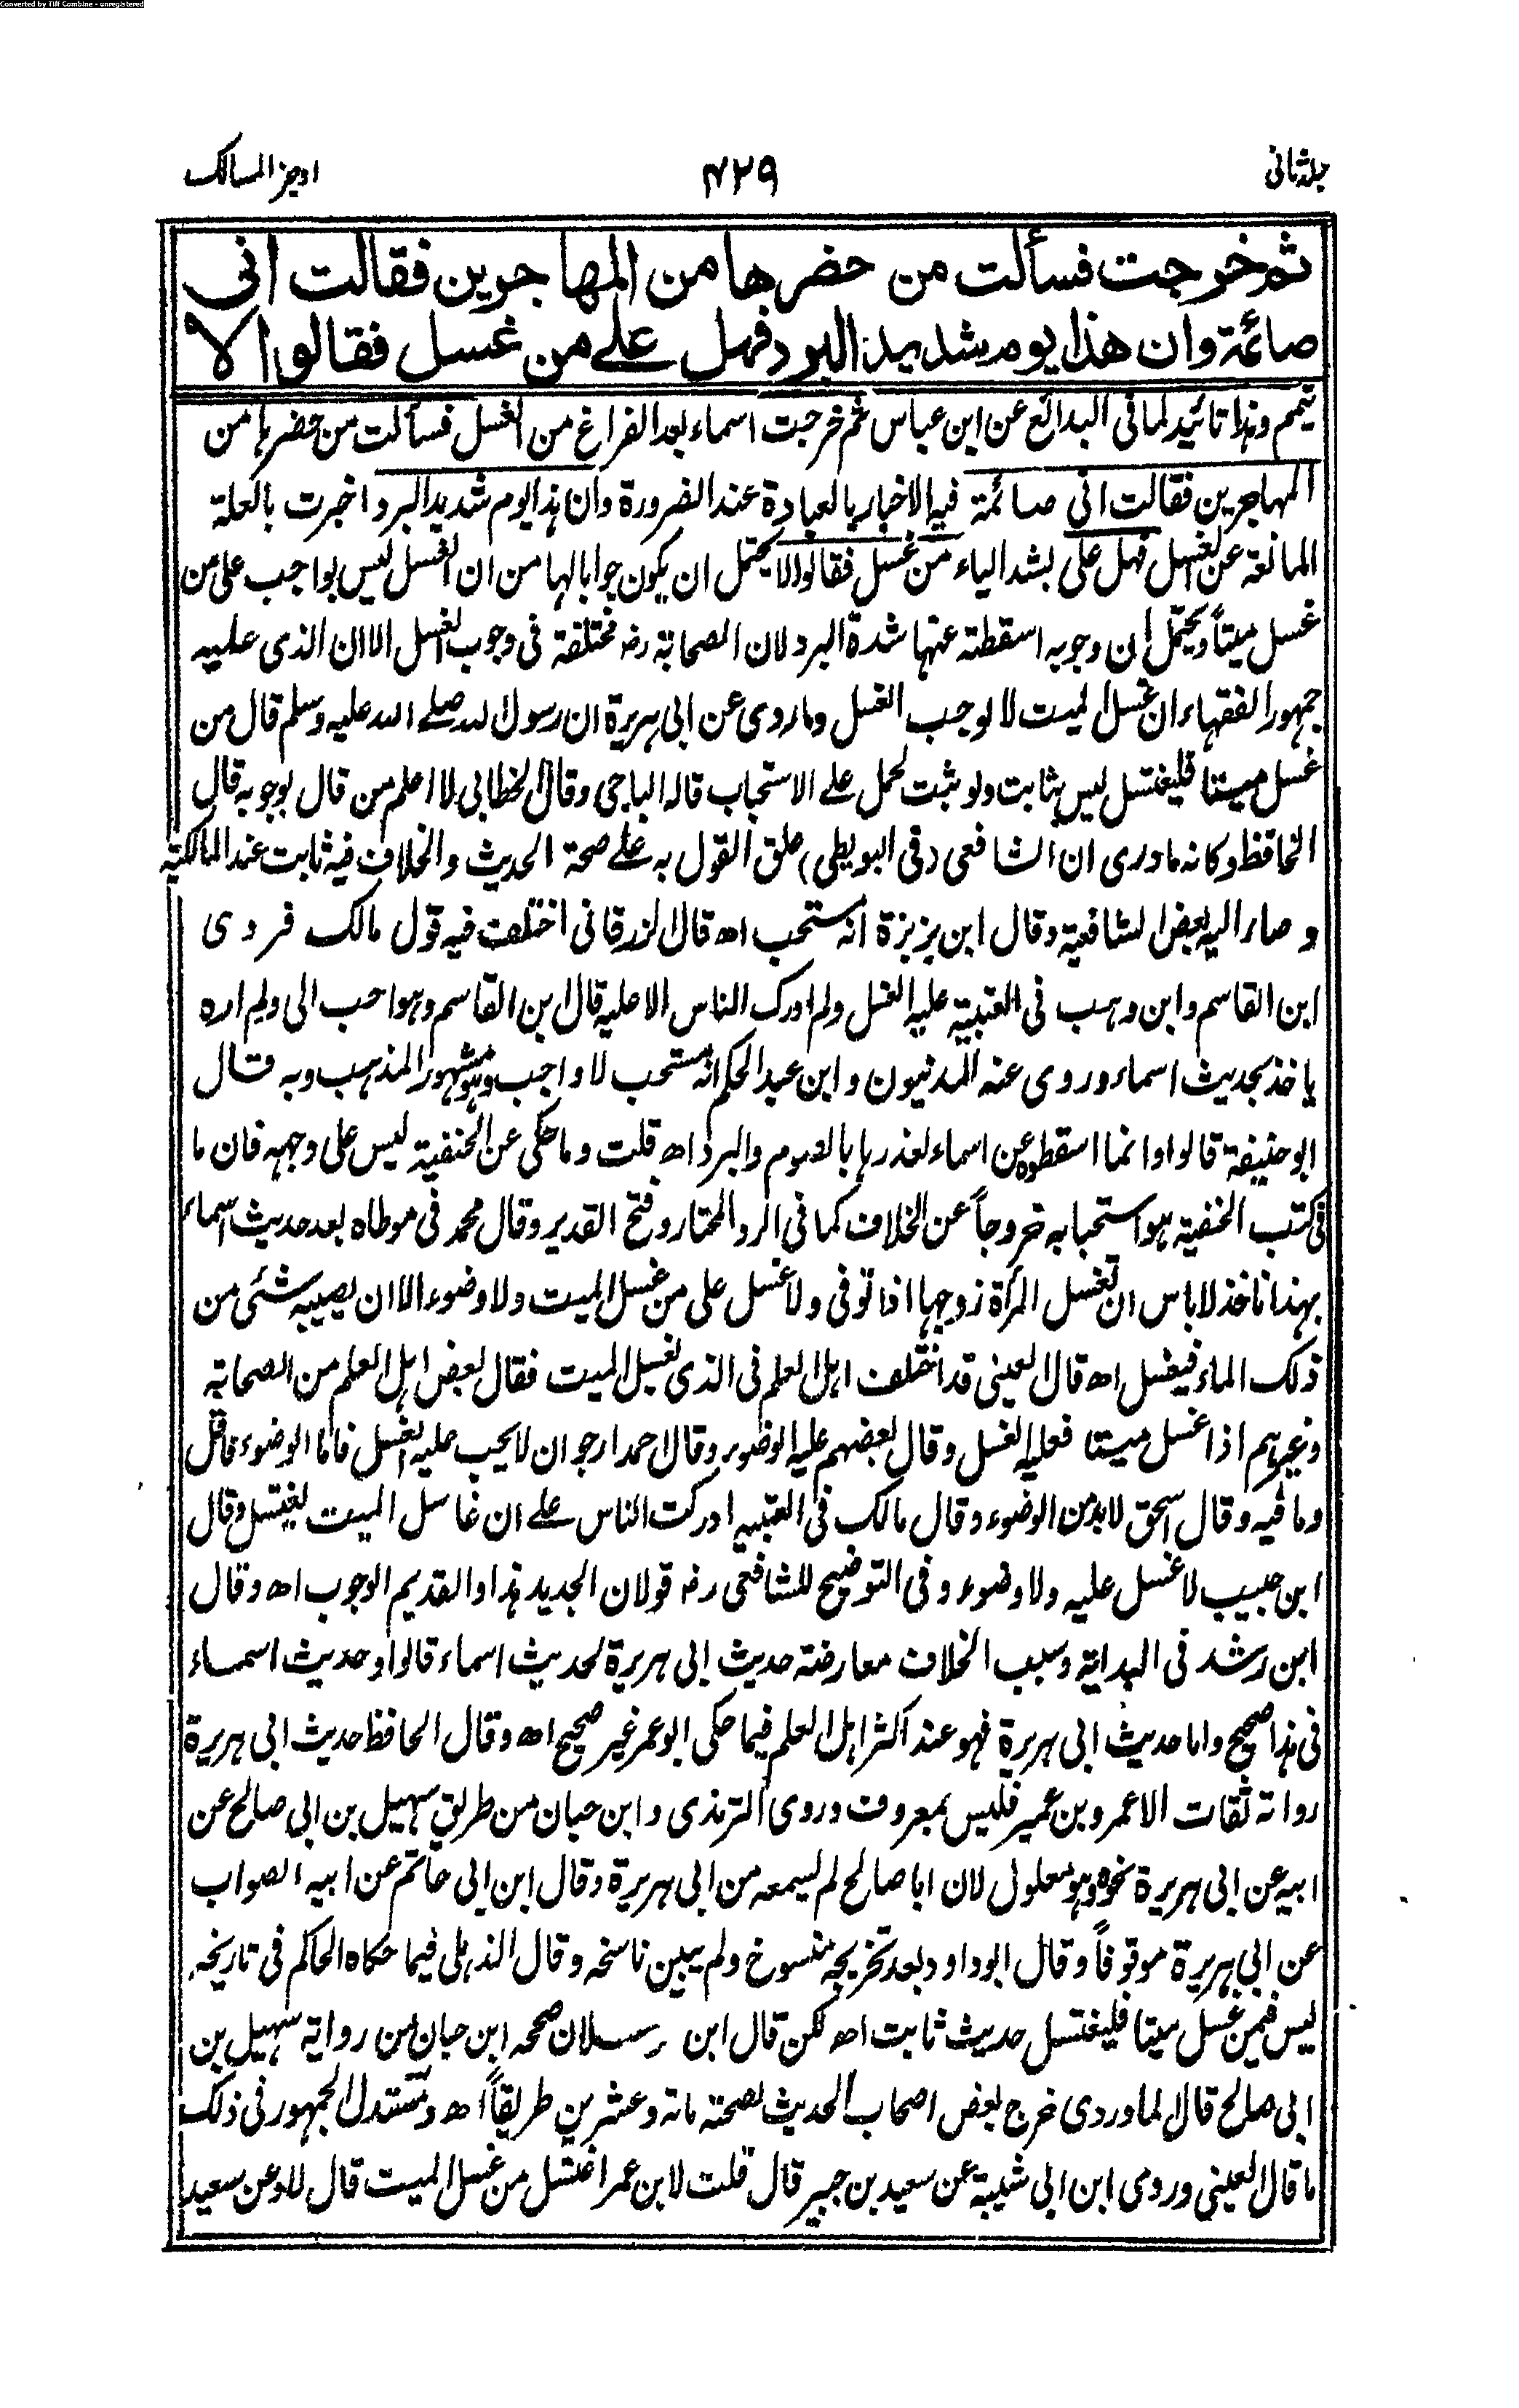 Converted by Tiff Combine - unregistered
جلد ثانی
۴۲۹
اوجز المسالک
ثم خرجت فسألت من حضرها من المهاجرين فقالت انی
صائمة وان هذا يوم شديد البرد فهل علے من غسل فقالوا لا
تیمم وہذا تائید لما فی البدائع عن ابن عباس ثم خرجت اسماء بعد الفراغ من الغسل فسألت من حضرہا من
المہاجرین فقالت انی صائمة فیہ الاخبار بالعبادة عند الضرورة وان ہذا یوم شدید البرد اخبرت بالعلة
المانعة عن الغسل فہل علی بشد الیاء من غسل فقالوا لا یحتمل ان یکون جوابا لہا من ان الغسل لیس بواجب علی من
غسل میتاً ویحتمل ان وجوبہ اسقطتہ عنہا شدة البرد لان الصحابة رضہ مختلفة فی وجوب الغسل الا ان الذی علیہ
جمہور الفقہاء ان غسل المیت لا یوجب الغسل وما روی عن ابی ہریرة ان رسول اللہ صلے اللہ علیہ وسلم قال من
غسل میتا فلیغتسل لیس بثابت ولو ثبت لحمل علے الاستحباب قالہ الباجی وقال الخطابی لا اعلم من قال بوجوبہ قال
الحافظ وکانہ ما دری ان الشافعی (فی البویطی) علق القول بہ علے صحة الحدیث والخلاف فیہ ثابت عند المالکیة
وصار الیہ بعض الشافعیة وقال ابن بزیزة انہ مستحب اھ قال الزرقانی اختلف فیہ قول مالک فروی
ابن القاسم وابن وہب فی العتبیة علیہ الغسل ولم ادرک الناس الا علیہ قال ابن القاسم وہو احب الی ولم ارہ
یاخذ بحدیث اسماء وروی عنہ المدنیون وابن عبد الحکم انہ مستحب لا واجب وہو مشہور المذہب وبہ قال
ابو حنیفة قالوا وانما اسقطوہ عن اسماء لعذرہا بالصوم والبرد اھ قلت وما حکی عن الحنفیة لیس علی وجہہ فان ما
فی کتب الحنفیة ہو استحبابہ خروجاً عن الخلاف کما فی الرد المحتار وفتح القدیر وقال محمد فی موطاہ بعد حدیث اسماء
بہذا ناخذ لا باس ان تغسل المرأة زوجہا اذا توفی ولا غسل علی من غسل المیت ولا وضوء الا ان یصیبہ شئی من
ذلک الماء فیغسل اھ قال العینی قد اختلف اہل العلم فی الذی یغسل المیت فقال بعض اہل العلم من الصحابة
وغیرہم اذا غسل میتا فعلیہ الغسل وقال بعضہم علیہ الوضوء وقال احمد ارجو ان لا یجب علیہ الغسل فاما الوضوء فاقل
وما فیہ وقال اسحق لا بد من الوضوء وقال مالک فی العتبیہ ادرکت الناس علے ان غاسل المیت یغتسل وقال
ابن حبیب لا غسل علیہ ولا وضوء وفی التوضیح للشافعی رضہ قولان الجدید ہذا والقدیم الوجوب اھ وقال
ابن رشد فی البدایة وسبب الخلاف معارضة حدیث ابی ہریرة لحدیث اسماء قالوا وحدیث اسماء
فی ہذا صحیح واما حدیث ابی ہریرة فہو عند اکثر اہل العلم فیما حکی ابو عمر غیر صحیح اھ وقال الحافظ حدیث ابی ہریرة
رواتہ ثقات الا عمرو بن عمیر فلیس بمعروف وروی الترمذی وابن حبان من طریق سہیل بن ابی صالح عن
ابیہ عن ابی ہریرة نحوہ وہو معلول لان ابا صالح لم یسمعہ من ابی ہریرة وقال ابن ابی حاتم عن ابیہ الصواب
عن ابی ہریرة موقوفاً وقال ابو داود بعد تخریجہ منسوخ ولم یبین ناسخہ وقال الذہلی فیما حکاہ الحاکم فی تاریخہ
لیس فیمن غسل میتا فلیغتسل حدیث ثابت اھ لکن قال ابن رسلان صححہ ابن حبان من روایة سہیل بن
ابی صالح قال الماوردی خرج بعض اصحاب الحدیث لصحتہ مائة وعشرین طریقاً اھ ومستدل الجمہور فی ذلک
ما قال العینی وروی ابن ابی شیبة عن سعید بن جبیر قال قلت لابن عمر اغتسل من غسل المیت قال لا وعن سعید